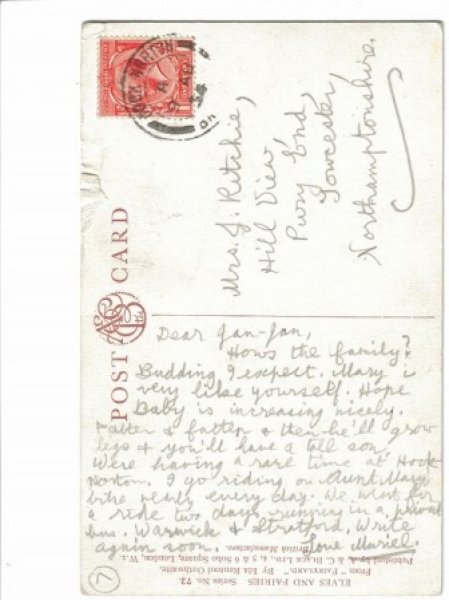 POST CARD
Mrs. J. Ritchie,
Hill View,
Pury End,
Towcester,
Northamptonshire.
Dear Jan-Jan,
Hows the family?
Budding I expect. Mary i
very like yourself. Hope
Baby is increasing nicely.
Fatter & fatter & then he'll grow
legs & you'll have a tall son.
Were having a rare time at Hook
Norton. I go riding on Aunt Mary
bike nearly every day. We went for
a ride two days running in a private
bus. Warwick & Stratford. Write
again soon. Love Muriel.
ELVES AND FAIRIES Series No. 72.
From "FAIRYLAND." By Ida Rentoul Outhwaite.
Published by A. & C. BLACK LTD., 4, 5 & 6 Soho Square, London, W.1.
British Manufacture.
7